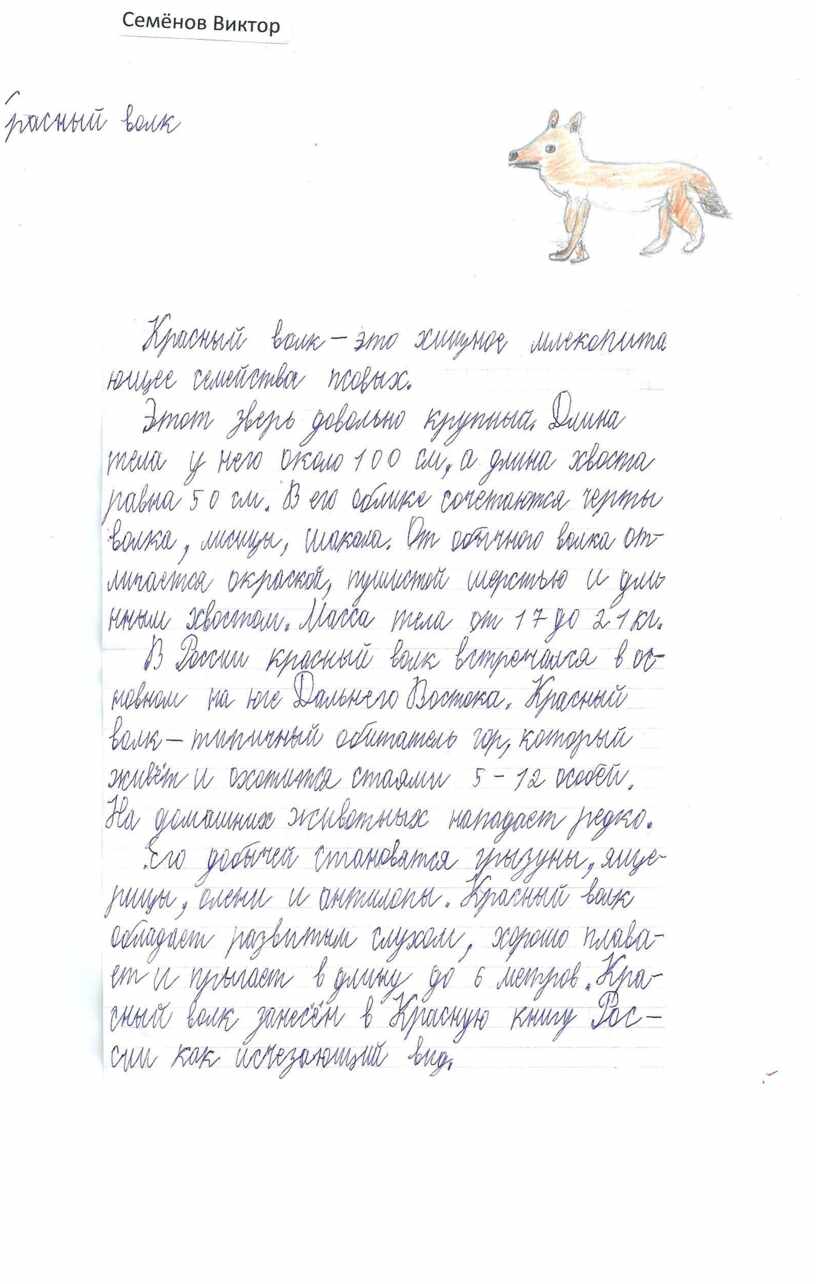 Семёнов Виктор
Красный волк
Красный волк – это хищное млекопита
ющее семейства псовых.
Этот зверь довольно крупный. Длина
тела у него около 100 см, а длина хвоста
равна 50 см. В его облике сочетаются черты
волка, лисицы, шакала. От обычного волка от-
личается окраской, пушистой шерстью и дли
нным хвостом. Масса тела от 17 до 21 кг.
В России красный волк встречался в ос-
новном на юге Дальнего Востока. Красный
волк – типичный обитатель гор, который
живёт и охотится стаями 5 – 12 особей.
На домашних животных нападает редко.
Его добычей становятся грызуны, яще-
рицы, олени и антилопы. Красный волк
обладает развитым слухом, хорошо плава-
ет и прыгает в длину до 6 метров. Кра-
сный волк занесён в Красную книгу Рос-
сии как исчезающий вид.